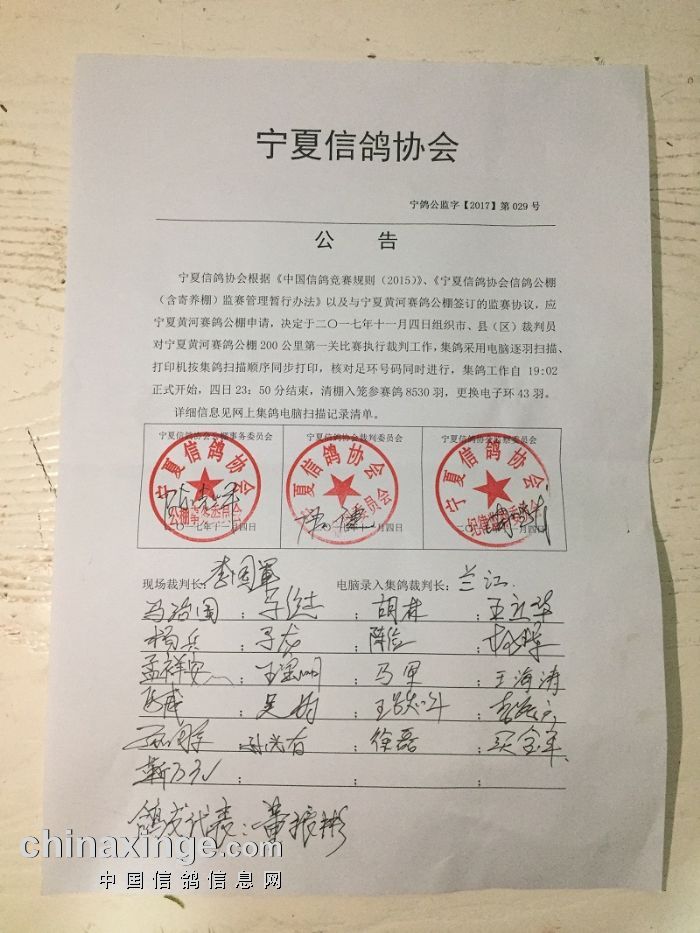 宁夏信鸽协会
宁鸽公监字【2017】第 029 号
公 告
宁夏信鸽协会根据《中国信鸽竞赛规则（2015）》、《宁夏信鸽协会信鸽公棚
（含寄养棚）监赛管理暂行办法》以及与宁夏黄河赛鸽公棚签订的监赛协议，应
宁夏黄河赛鸽公棚申请，决定于二〇一七年十一月四日组织市、县（区）裁判员
对宁夏黄河赛鸽公棚 200 公里第一关比赛执行裁判工作，集鸽采用电脑逐羽扫描、
打印机按集鸽扫描顺序同步打印，核对足环号码同时进行，集鸽工作自 19:02
正式开始，四日 23：50 分结束，清棚入笼参赛鸽 8530 羽，更换电子环 43 羽。
详细信息见网上集鸽电脑扫描记录清单。
宁夏信鸽协会公棚事务委员会 宁夏信鸽协会裁判委员会 宁夏信鸽协会监察委员会
宁夏信鸽协会 宁夏信鸽协会 宁夏信鸽协会
二〇一七年十一月四日 二〇一七年十一月四日 二〇一七年十一月四日
现场裁判长：李国军 电脑录入集鸽裁判长：兰江
马治国； ； 胡林 ；
杨兵 ； ； ；
孟祥安 ； 马军 ； 王海涛
； ；
徐磊 ； 买金军
； ； ；
鸽友代表：黄振彬
chinaxinge.com
中国信鸽信息网